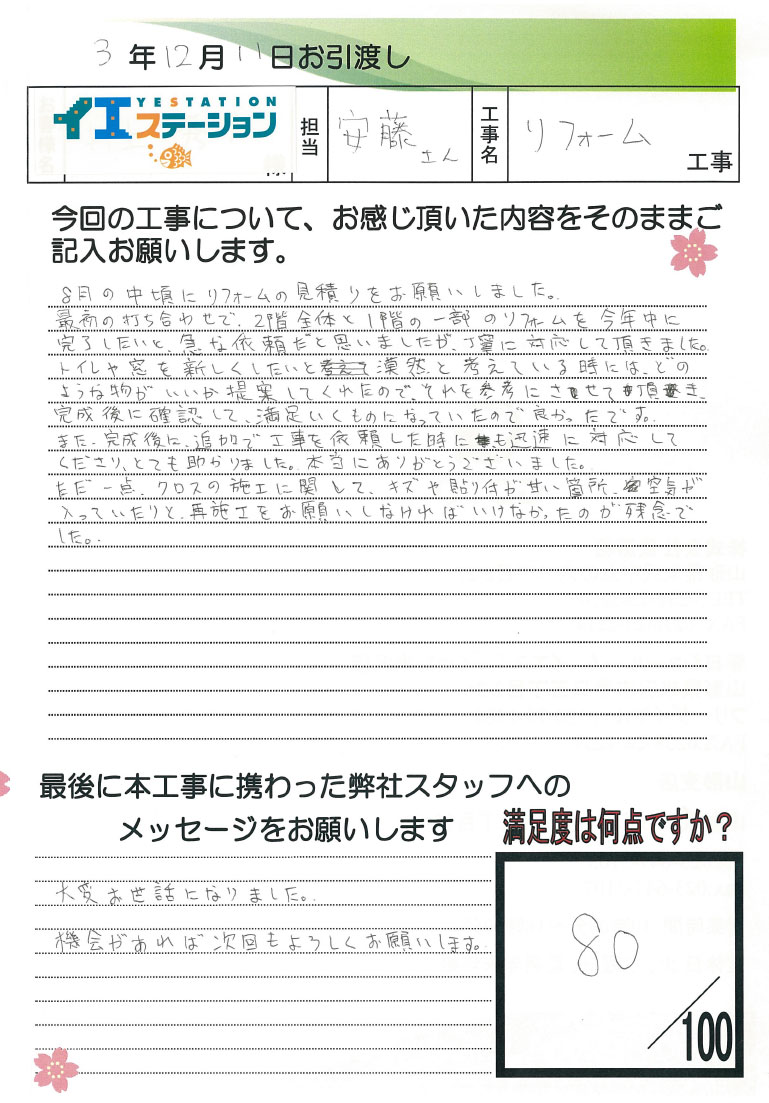 3年12月11日お引渡し
YESTATION
イエステーション
担当
安藤さん
工事名
リフォーム
工事
今回の工事について、お感じ頂いた内容をそのままご
記入お願いします。
8月の中頃にリフォームの見積りをお願いしました。
最初の打ち合わせで、2階全体と1階の一部のリフォームを今年中に
完了したいと、急な依頼だと思いましたが、丁寧に対応して頂きました。
トイレや窓を新しくしたいと漠然と考えている時には、どの
ような物がいいか提案してくれたので、それを参考にさせて頂き、
完成後に確認して、満足いくものになっていたので良かったです。
また、完成後に、追加で工事を依頼した時にも迅速に対応して
くださり、とても助かりました。本当にありがとうございました。
ただ一点、クロスの施工に関して、キズや貼り付が甘い箇所、空気が
入っていたりと、再施工をお願いしなければいけなかったのが残念で
した。
最後に本工事に携わった弊社スタッフへの
メッセージをお願いします
満足度は何点ですか?
大変お世話になりました。
機会があれば次回もよろしくお願いします。
80
/100